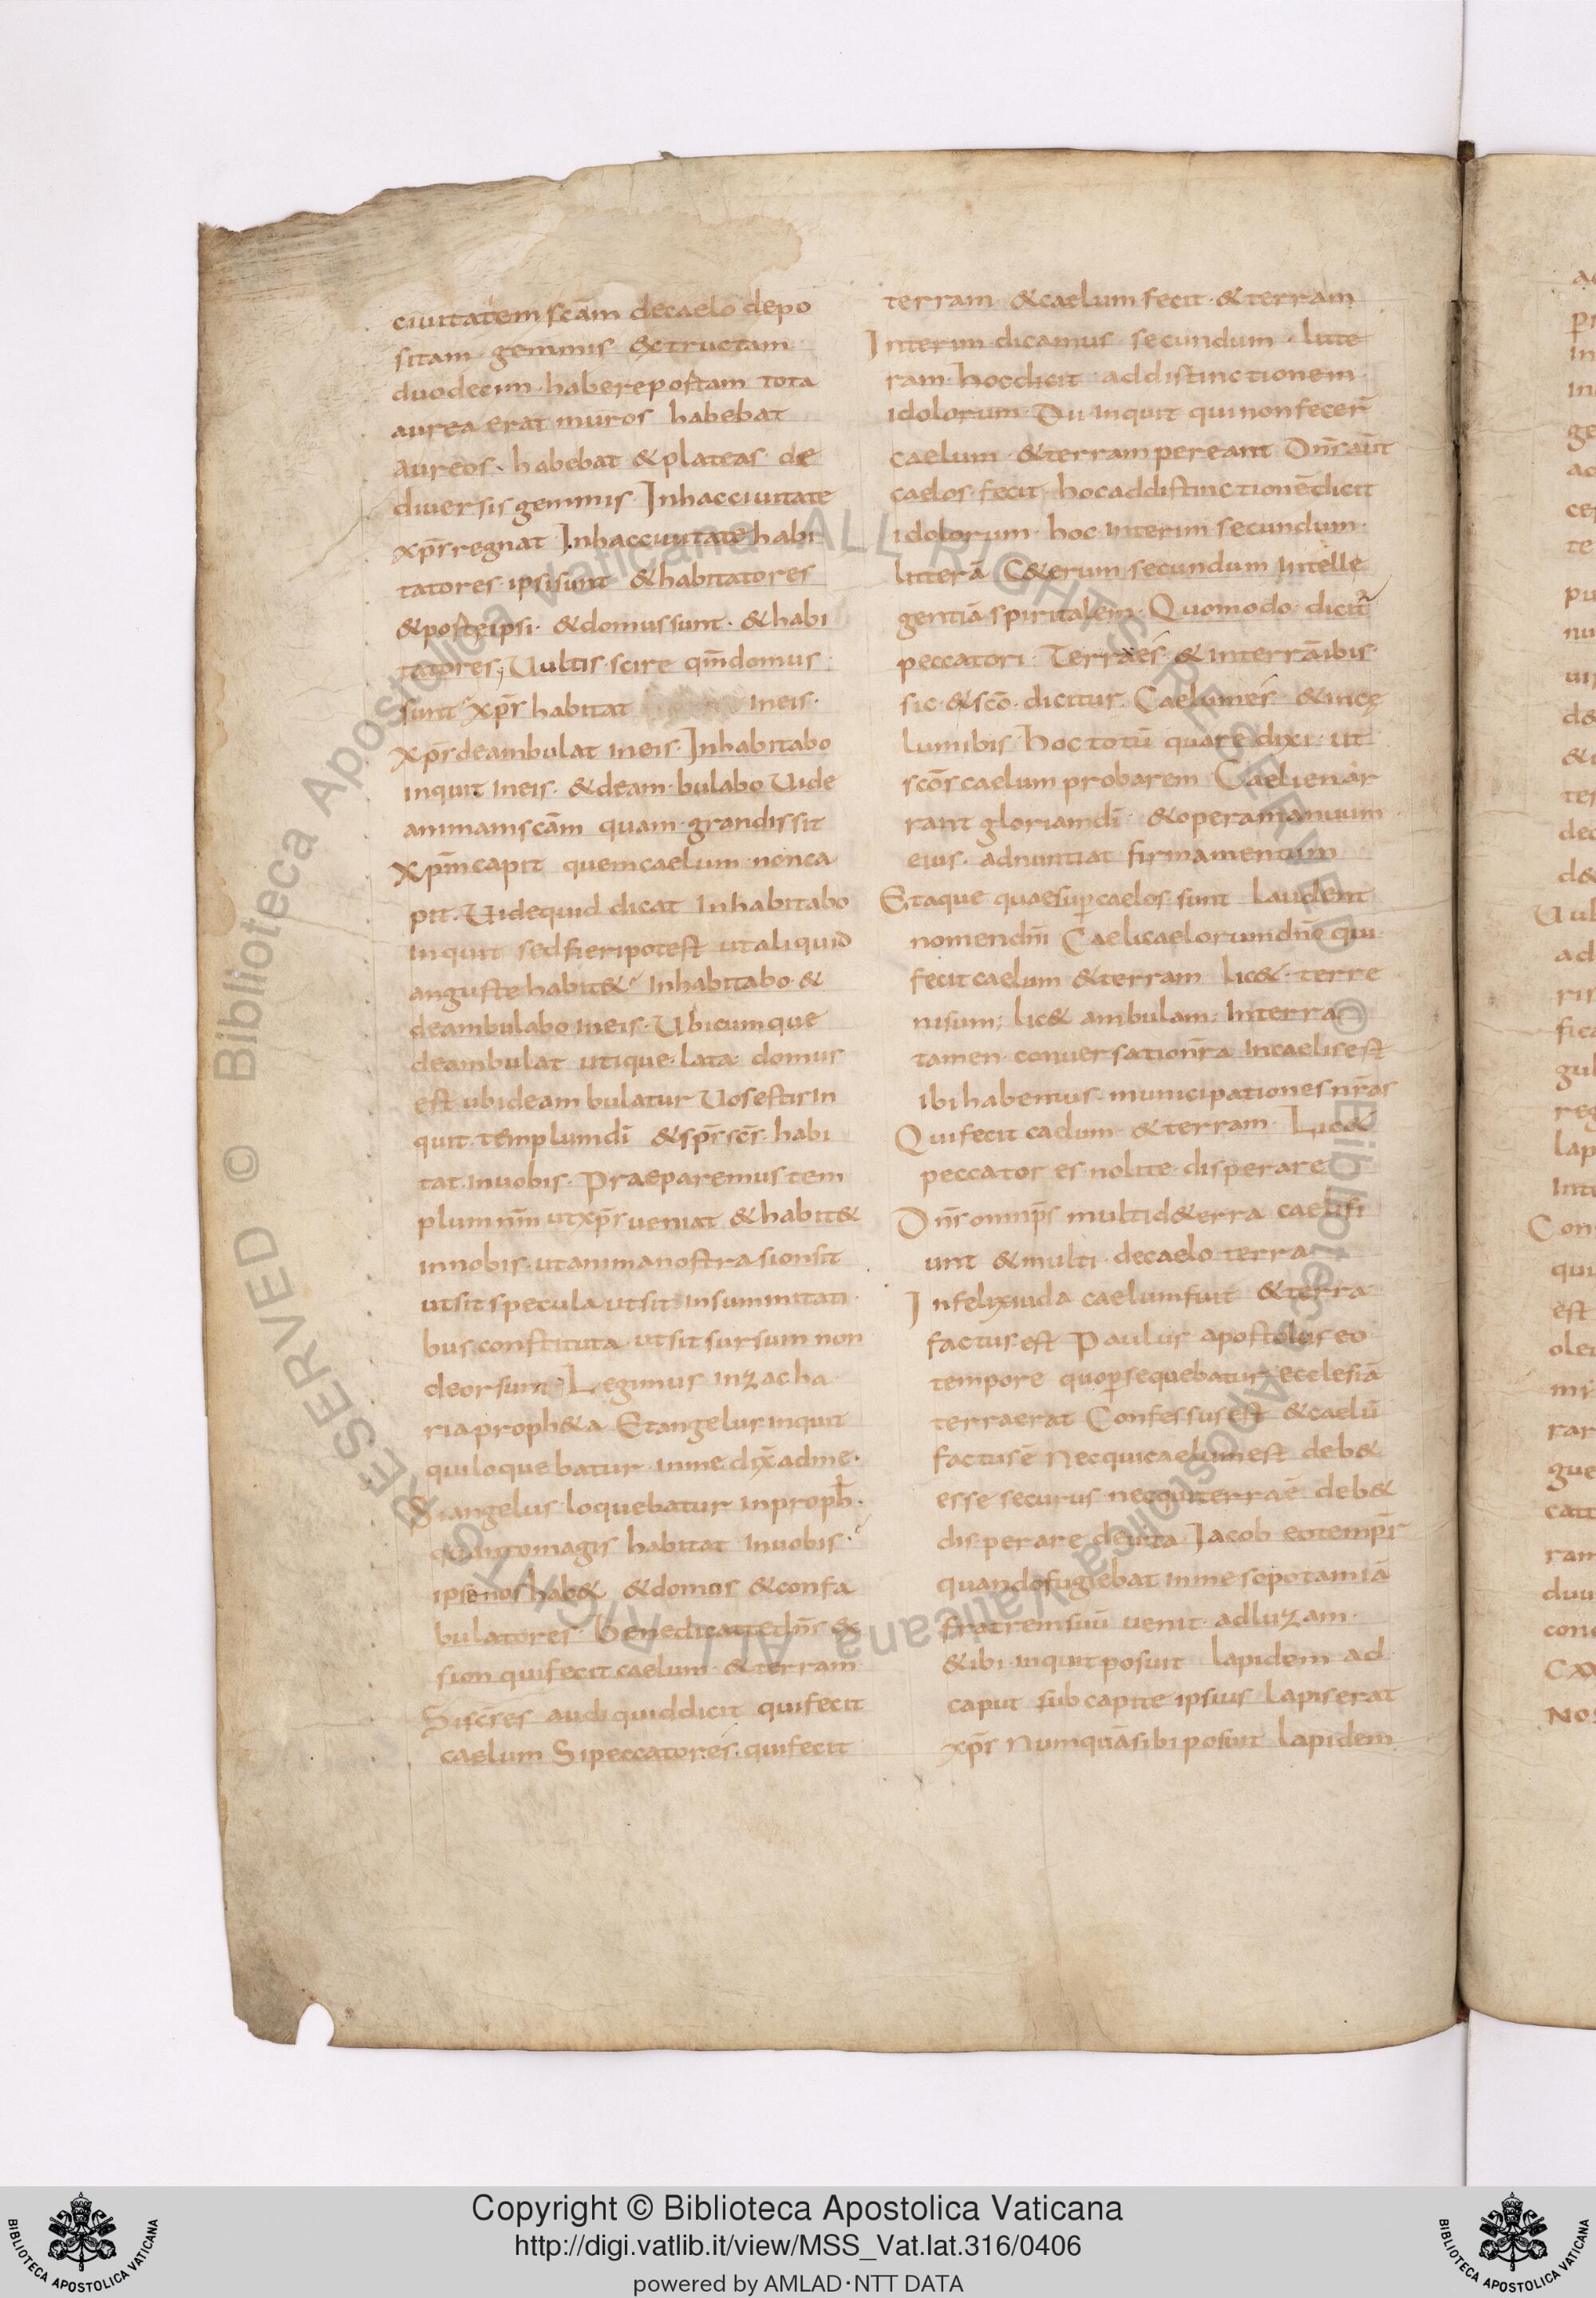 ciuitatem scām decaelo depo
sitam gemmis &ctructam
duodecim haberepostam tota
aurea erat muros habebat
aureos habebat &plateas de
diuersis gemmis Inhacciuitate
xp̄s regnat Inhacciuitate habi
tatores ipsisunt &habitatores
&posteipsi &domussunt &habi
tatores; Uultis scire qm̄domus
sunt xp̄s habitat ineis
xp̄s deambulat ineis Inhabitabo
inquit ineis &deambulabo Uide
animamscām quam grandissit
xp̄m capit quemcaelum nonca
pit Uidequid dicat Inhabitabo
inquit sedfieripotest utaliquid
angustehabit& inhabitabo &
deambulabo ineis Ubicumque
deambulat utique lata domus
est ubideambulatur Uosestisin
quit templumdī &sp̄s sc̄s habi
tat inuobis Praeparemus tem
plum nm̄ utxp̄s ueniat &habit&
innobis utanimanostra sionsit
utsit specula utsit insummitati
bus constituta utsit sursum non
deorsum Legimus inzacha
ria proph&a Etangelus inquit
quiloquebatur inme dix̄ adme
Siangelus loquebatur inproph̄
quantomagis habitat inuobis
ipse nos hab& &domos &confa
bulatores Benedicattedn̄s &
sion quifecit caelum &terram
Sisc̄s es audi quiddicit quifecit
caelum Sipeccatores quifecit
terram &caelum fecit &terram
Interim dicamus secundum litte
ram hocdicit addistinctionem
idolorum Dii inquit quinonfecer̄
caelum &terram pereant Dn̄s aūt
caelos fecit hocaddistinctionēdicit
idolorum hoc interim secundum
litterā C&erum secundum intelle
gentiā spiritalem Quomodo dicit̄
peccatori Terraes &interrāibis
sic &scō dicitur Caelumes &incę
lumibis hoc totū quare dixi ut
scōs caelum probarem Caelienar
rant gloriamdī &operamanuum
eius adnuntiat firmamentum
Etaque quaesup̄ caelos sunt laudent
nomendn̄i Caelicaelorumdn̄e qui
fecit caelum &terram lic& terre
nisum; lic& ambulam interra
tamen conuersation̄ra incaelisest
ibihabemus municipationes nr̄as
Quifecit caelum &terram Lic&
peccator es nolite disperare
Dn̄s omnip̄s multid&erra caelifi
unt &multi decaelo terra
Infelixiuda caelumfuit &terra
factus est Paulus apostolus eo
tempore quop̄sequebatur ecclesiā
terraerat Confessusest &caelū
factusē Necquicaelumest deb&
esse securus necquiterraē deb&
disperare deuita Iacob eotemp̄r
quandofugiebat inmesopotamiā
fratremsuū uenit adluzam
&ibi inquit posuit lapidem ad
caput sub capite ipsius lapiserat
xp̄s Numquāsibi posuit lapidem
Copyright © Biblioteca Apostolica Vaticana
http://digi.vatlib.it/view/MSS_Vat.lat.316/0406
powered by AMLAD·NTT DATA